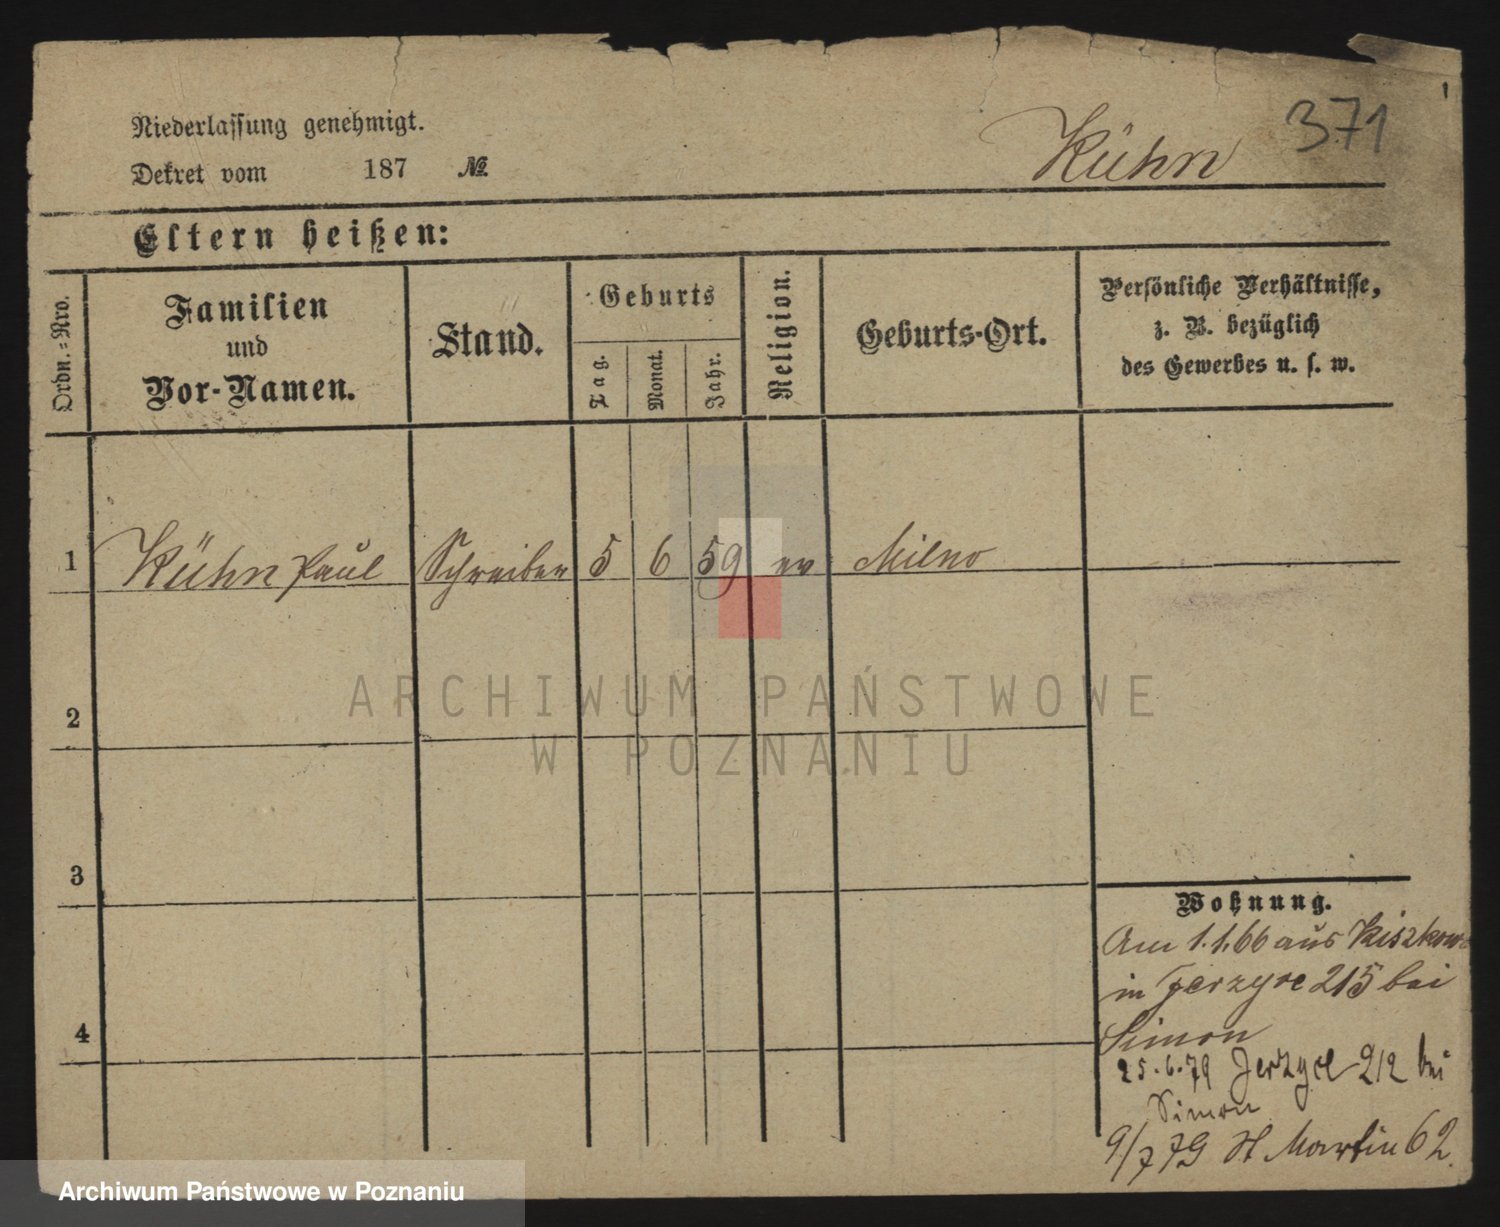 Niederlassung genehmigt.
Dekret vom 187 №
Kühn 371
Eltern heißen:
Ordn.=Nro.
Familien
und
Vor-Namen.
Stand.
Geburts
Tag.
Monat.
Jahr.
Religion.
Geburts-Ort.
Persönliche Verhältnisse,
z. B. bezüglich
des Gewerbes u. s. w.
1 Kühn Paul Schreiber 5 6 59 ev Milno
2
3
4
Wohnung.
Am 1.1.66 aus Kiszkowo
in Jerzyce 215 bei
Simon
25.6.79 Jerzyce 212 bei
Simon
9/7 79 St Martin 62.
ARCHIWUM PAŃSTWOWE
W POZNANIU
Archiwum Państwowe w Poznaniu